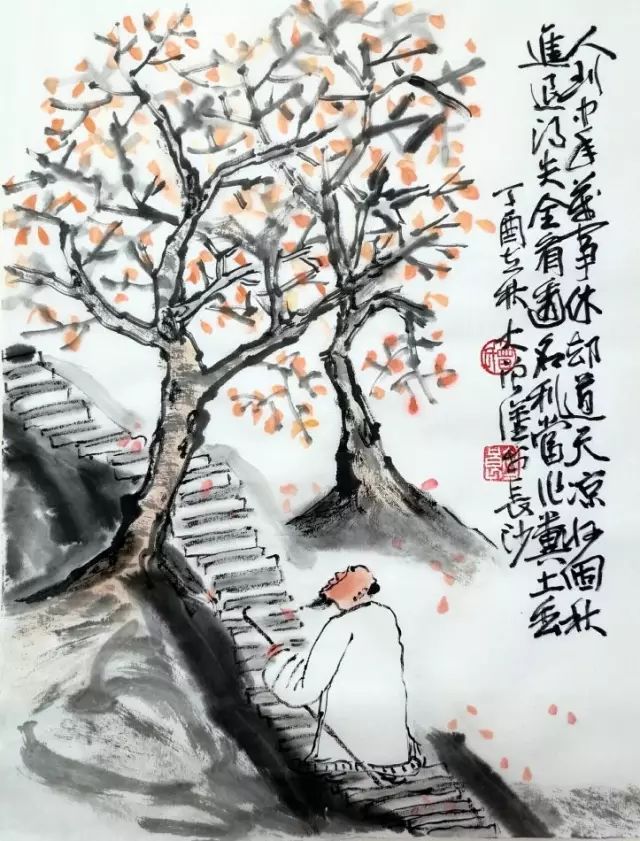 人到中年萬事休却道天凉好個秋
進退得失全看透名利當作糞土丢
丁酉秋大長沙